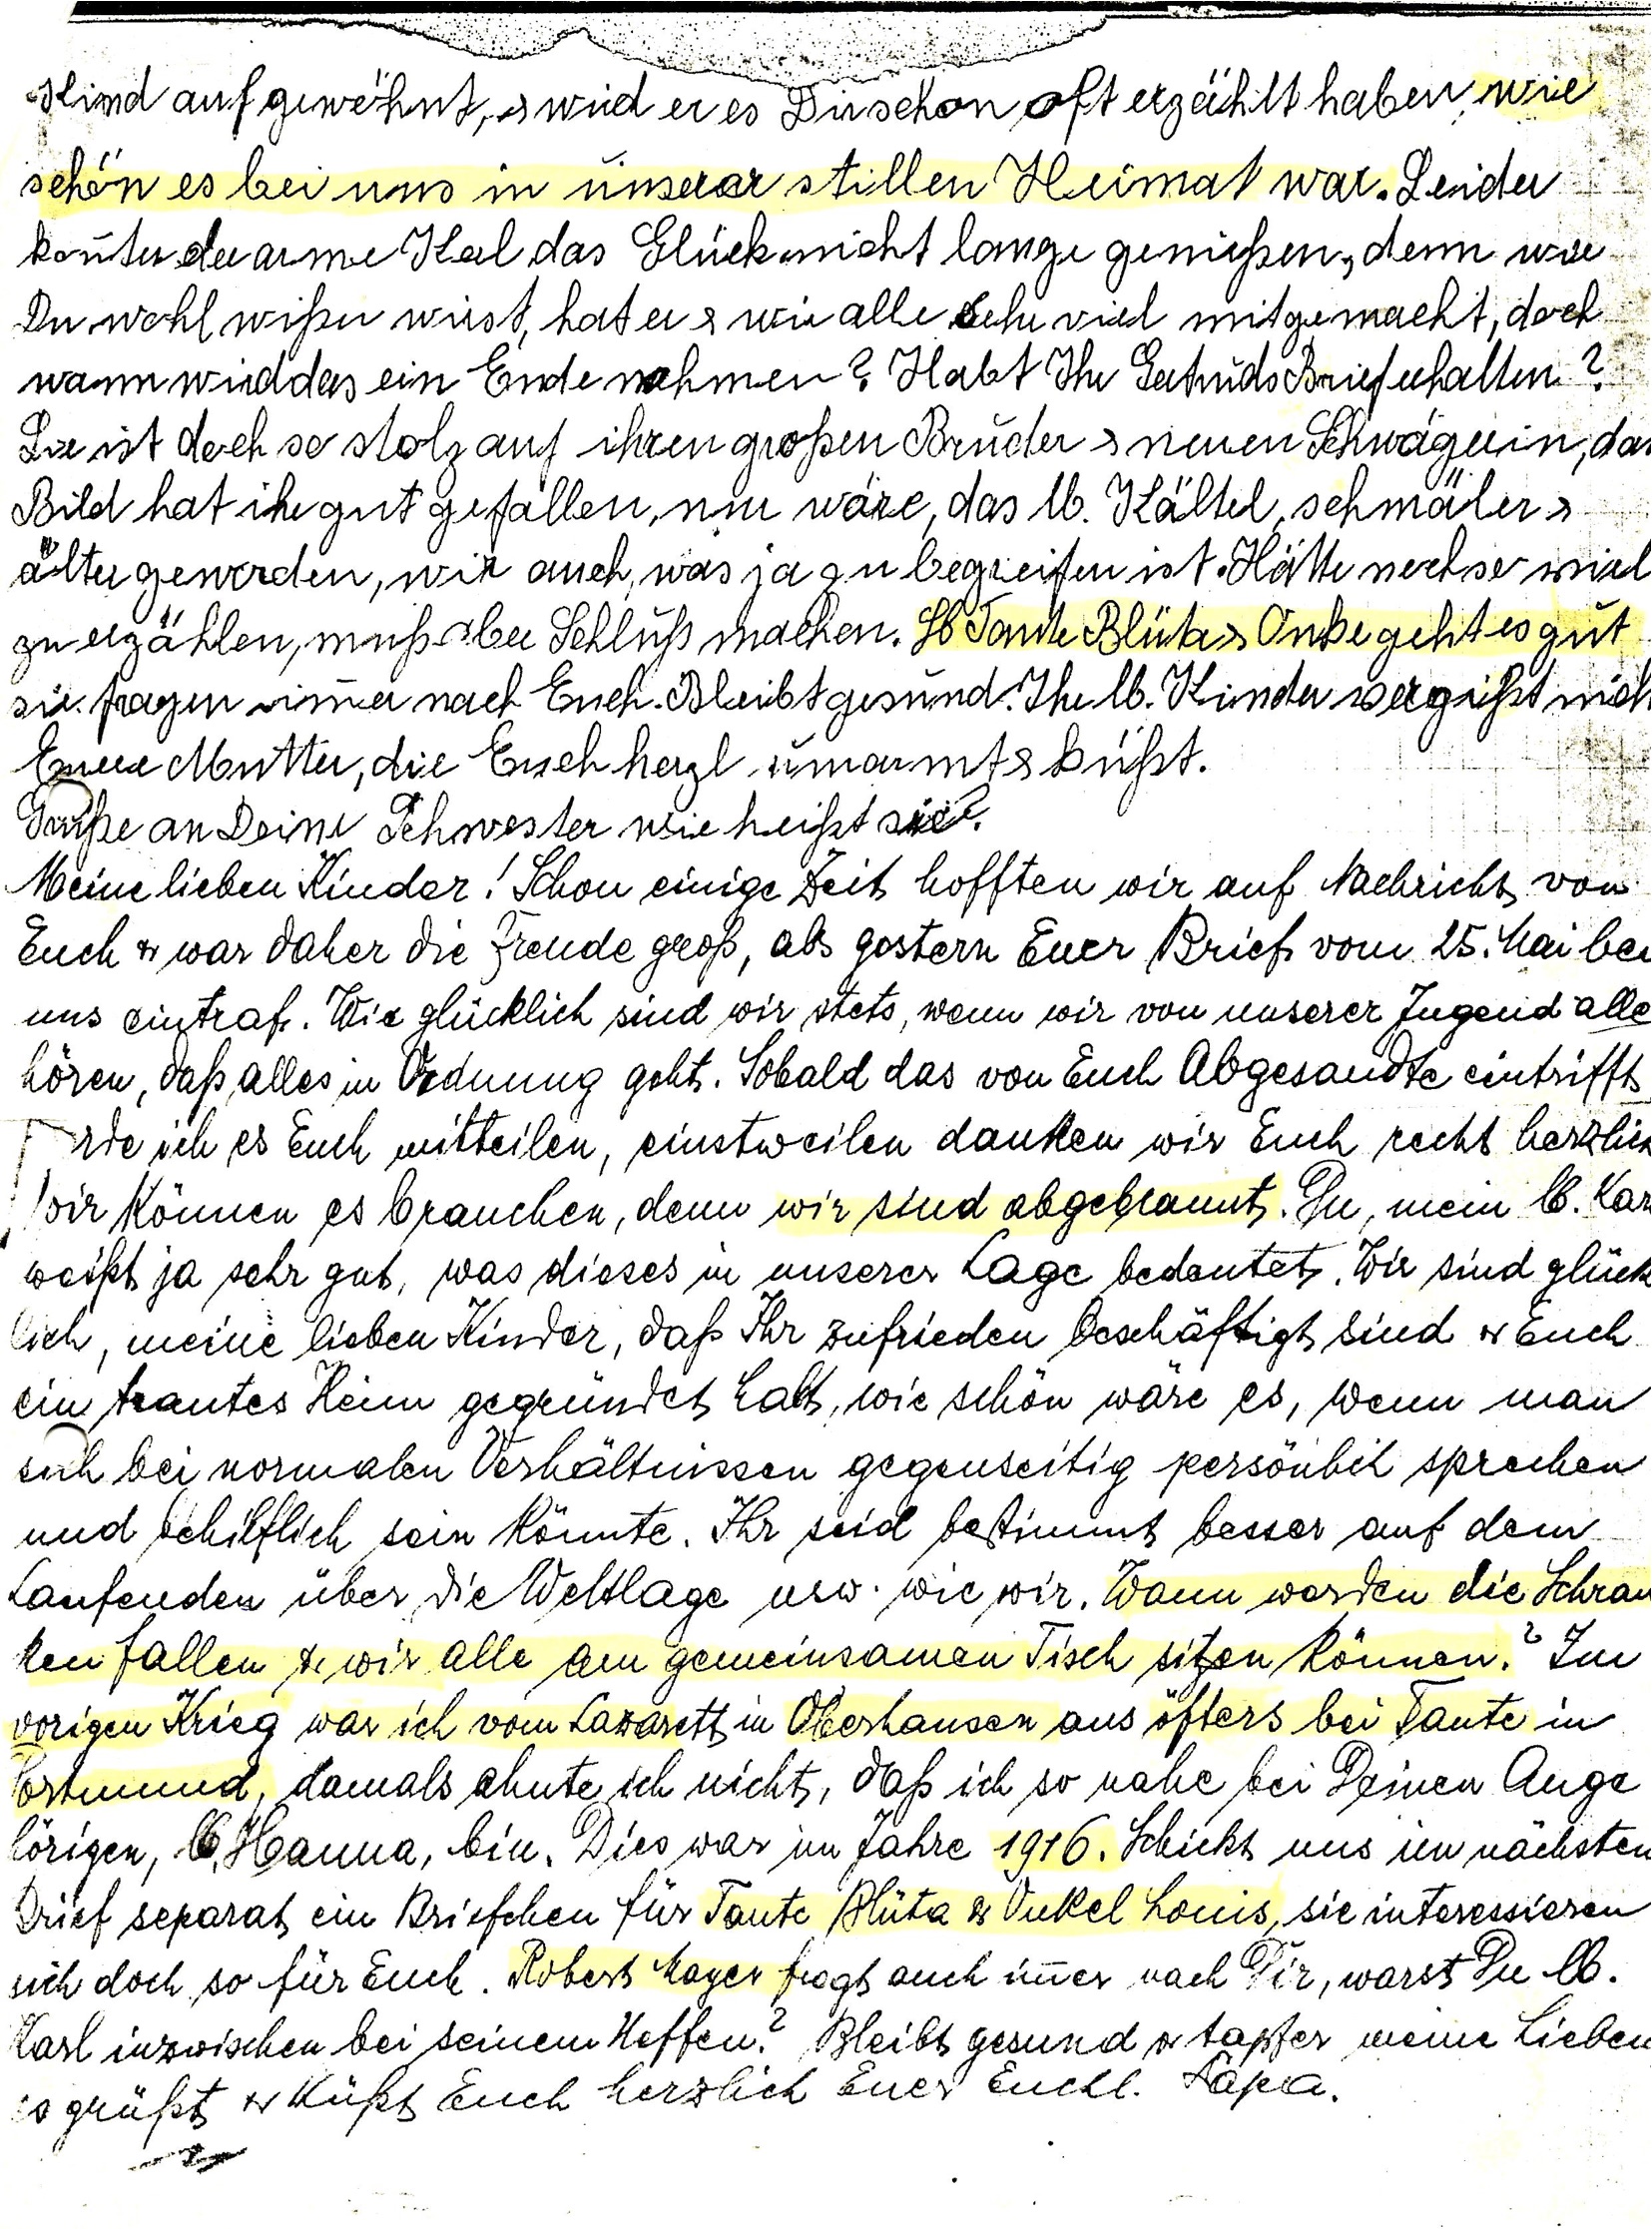 Kind aufgewöhnt, & wird er es Dir schon oft erzählt haben, wie
schön es bei uns in unserer stillen Heimat war. Leider
konnte der arme Karl das Glück nicht lange genießen, denn wie
Du wohl wißen wirst, hat er & wir alle sehr viel mitgemacht, doch
wann wird das ein Ende nehmen? Habt Ihr Gertruds Brief erhalten?
Sie ist doch so stolz auf ihren großen Bruder & neuen Schwägerin, das
Bild hat ihr gut gefallen, nur wäre, das lb. Kältel, schmäler &
älter geworden, wir auch, was ja zu begreifen ist. Hätte noch so viel
zu erzählen, muß aber Schluß machen. Lb Tante Blüta & Onkel geht es gut
sie fragen im̄er nach Euch. Bleibt gesund. Ihr lb. Kinder vergißt nicht
Euere Mutter, die Euch herzl umarmt & küßt.
Grüße an Deine Schwester wie heißt sie?
Meine lieben Kinder! Schon einige Zeit hofften wir auf Nachricht von
Euch & war daher die Freude groß, als gestern Euer Brief vom 25. Mai bei
uns eintraf. Wie glücklich sind wir stets, wenn wir von unserer Jugend alle
hören, daß alles in Ordnung geht. Sobald das von Euch Abgesandte eintrifft
rde ich es Euch mitteilen, einstweilen danken wir Euch recht herzlich
wir können es brauchen, denn wir sind abgebrannt. Du, mein lb. Kar
weißt ja sehr gut, was dieses in unserer Lage bedeutet. Wir sind glück
lich, meine lieben Kinder, daß Ihr zufrieden beschäftigt sind & Euch
ein trautes Heim gegründet habt, wie schön wäre es, wenn man
sich bei normalen Verhältnissen gegenseitig persönlich sprechen
und behilflich sein könnte. Ihr seid bestimmt besser auf dem
Laufenden über die Weltlage usw. wie wir. Wann werden die Schran
ken fallen & wir alle am gemeinsamen Tisch sitzen können? Im
vorigen Krieg war ich vom Lazarett in Oberhausen aus öfters bei Tante in
Dortmund, damals ahnte ich nicht, daß ich so nahe bei Deinen Ange
hörigen, lb. Hanna, bin. Dies war im Jahre 1916. Schickt uns im nächsten
Brief separat ein Briefchen für Tante Blüta & Onkel Louis, sie interessieren
sich doch so für Euch. Robert Mayer fragt auch im̄er nach Dir, warst Du lb.
Karl inzwischen bei seinem Neffen? Bleibt gesund & tapfer meine Lieben
es grüßt & küßt Euch herzlich Euer Euchl. Papa.